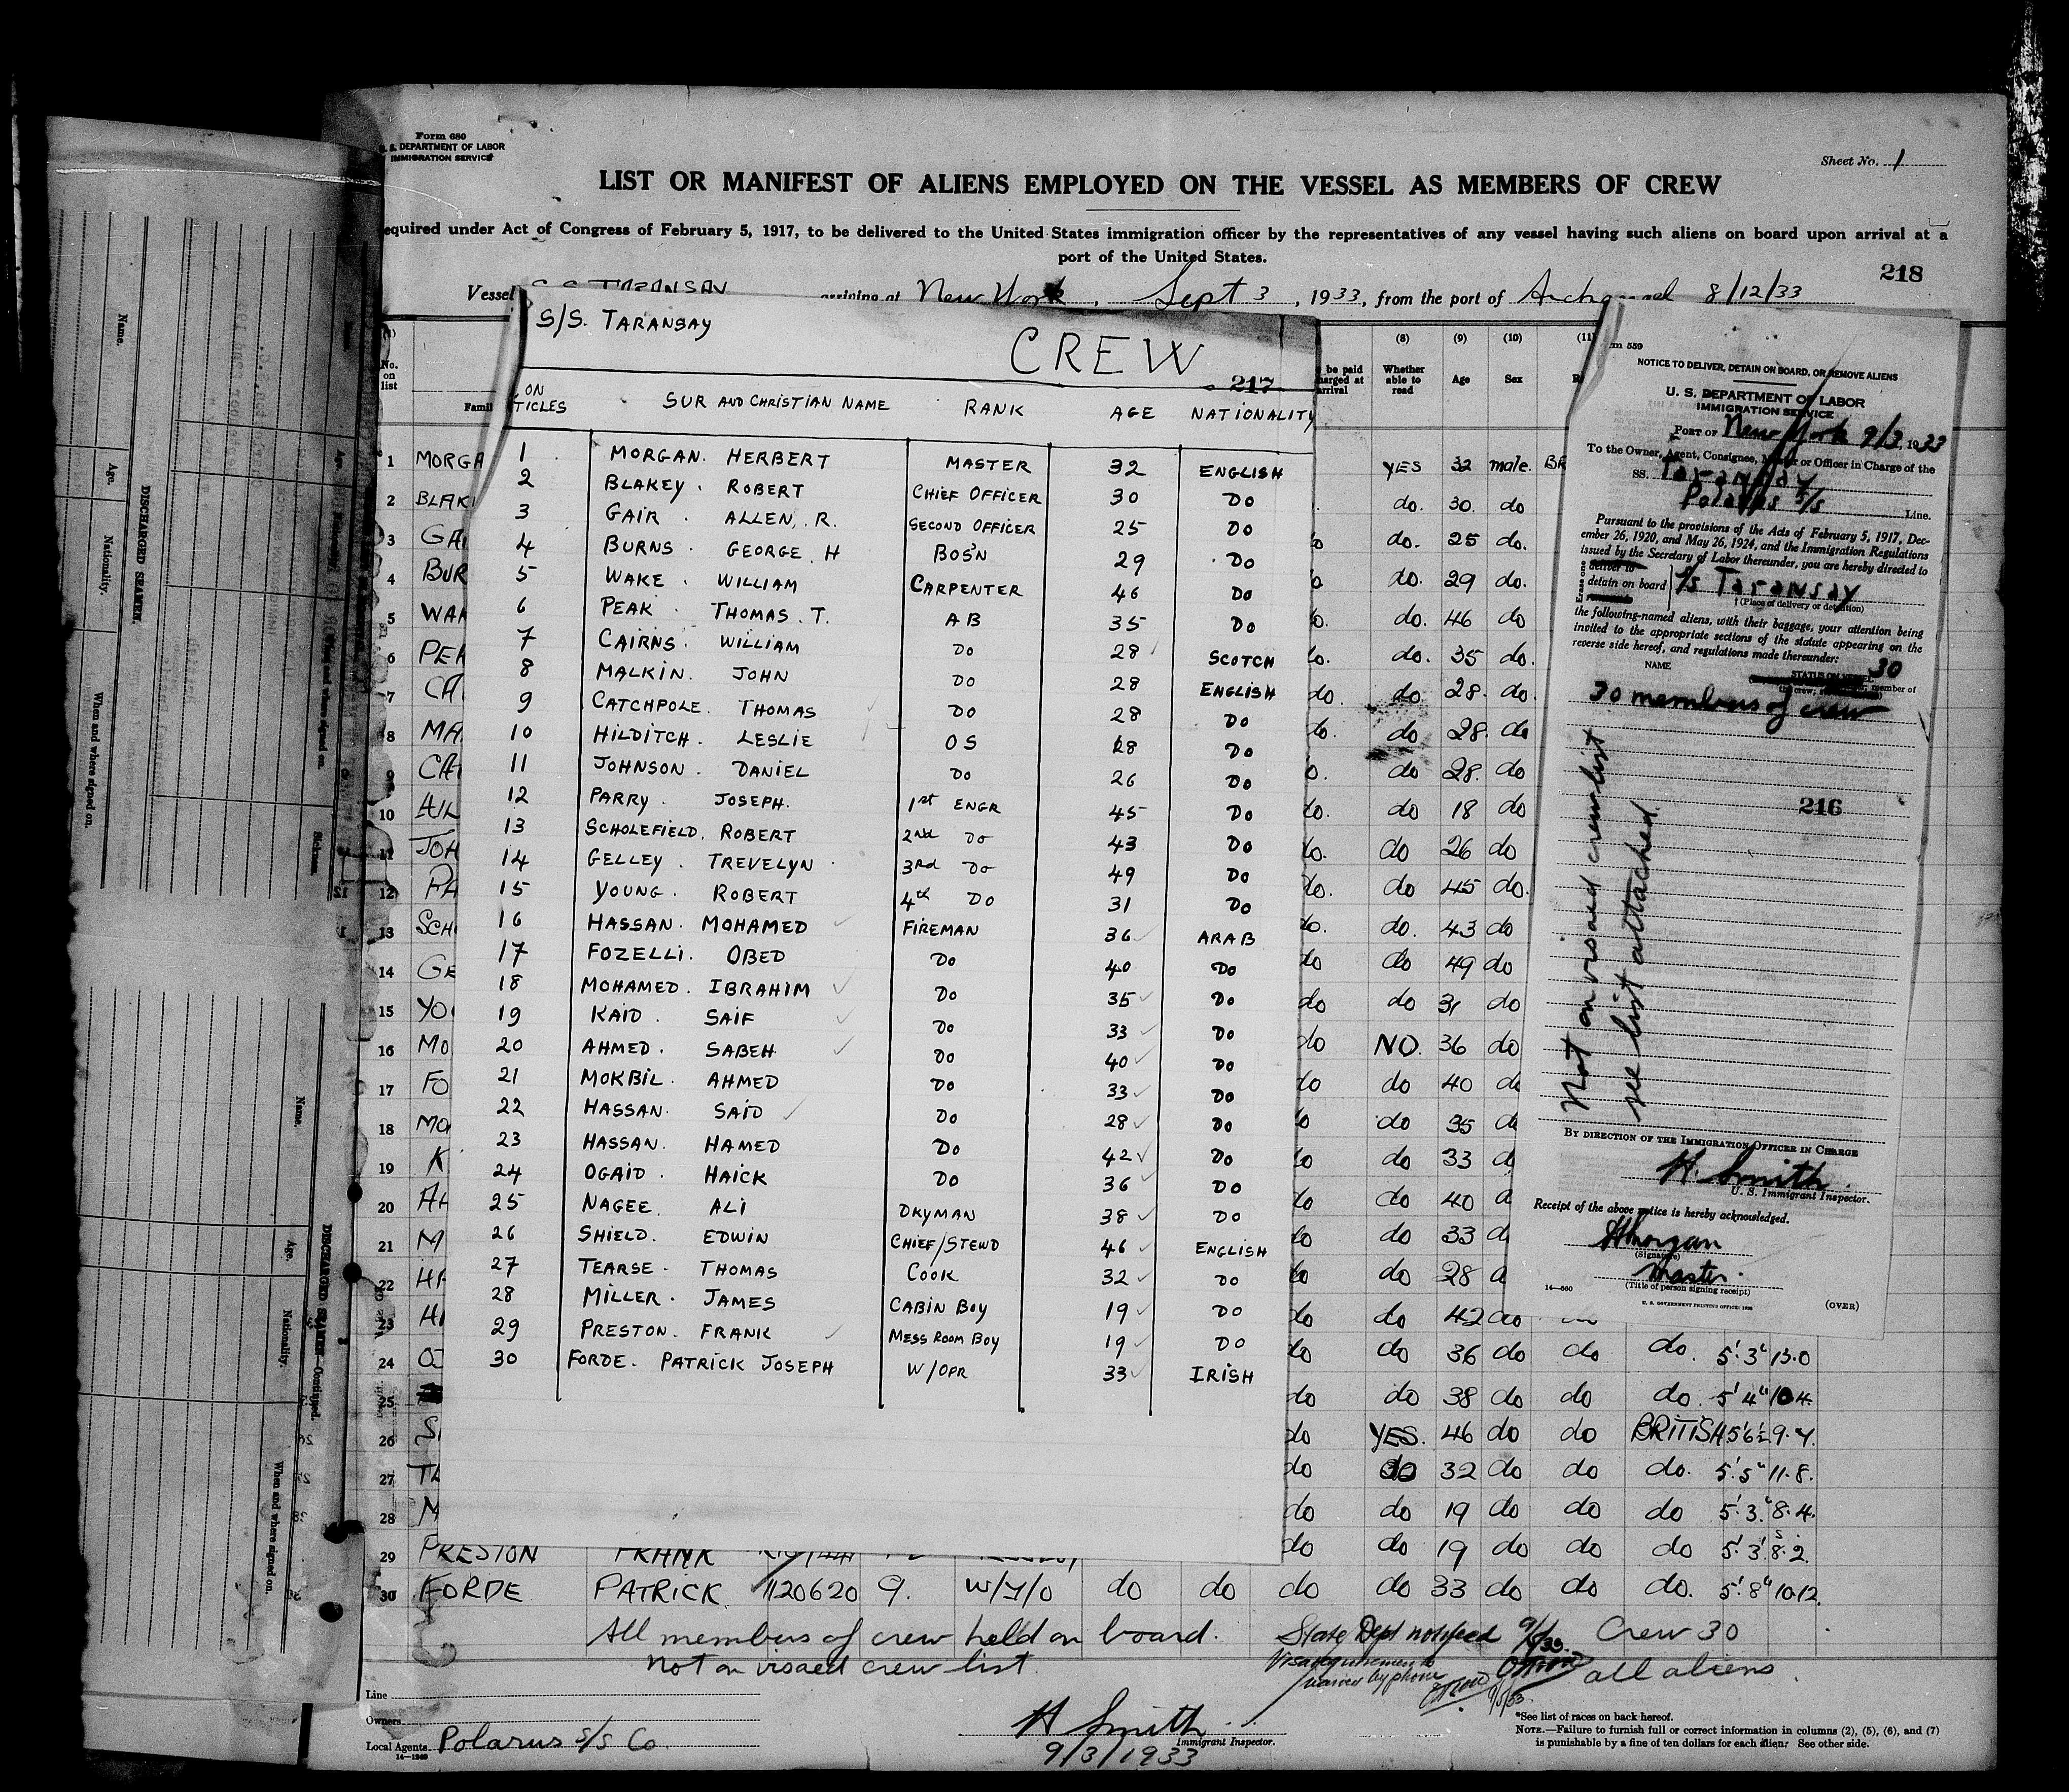 Form 680
U. S. DEPARTMENT OF LABOR
IMMIGRATION SERVICE
Sheet No. 1
LIST OR MANIFEST OF ALIENS EMPLOYED ON THE VESSEL AS MEMBERS OF CREW
equired under Act of Congress of February 5, 1917, to be delivered to the United States immigration officer by the representatives of any vessel having such aliens on board upon arrival at a
port of the United States.
218
Vessel S.S. TARANSAY arriving at New York, Sept 3, 1933, from the port of 8/12/33
S/S. TARANSAY
CREW
217
ON
TICLES SUR AND CHRISTIAN NAME RANK AGE NATIONALITY
1 MORGAN. HERBERT MASTER 32 ENGLISH
2 BLAKEY. ROBERT CHIEF OFFICER 30 DO
3 GAIR. ALLEN. R. SECOND OFFICER 25 DO
4 BURNS. GEORGE. H BOS'N 29 DO
5 WAKE. WILLIAM CARPENTER 46 DO
6 PEAK. THOMAS. T. AB 35 DO
7 CAIRNS. WILLIAM DO 28 SCOTCH
8 MALKIN. JOHN DO 28 ENGLISH
9 CATCHPOLE. THOMAS DO 28 DO
10 HILDITCH. LESLIE OS 18 DO
11 JOHNSON. DANIEL DO 26 DO
12 PARRY. JOSEPH. 1st ENGR 45 DO
13 SCHOLEFIELD. ROBERT 2nd DO 43 DO
14 GELLEY. TREVELYN 3rd DO 49 DO
15 YOUNG. ROBERT 4th DO 31 DO
16 HASSAN. MOHAMED FIREMAN 36 ARAB
17 FOZELLI. OBED DO 40 DO
18 MOHAMED. IBRAHIM DO 35 DO
19 KAID. SAIF DO 33 DO
20 AHMED. SABEH DO 40 DO
21 MOKBIL. AHMED DO 33 DO
22 HASSAN. SAID DO 28 DO
23 HASSAN. HAMED DO 42 DO
24 OGAID. HAICK DO 36 DO
25 NAGEE. ALI DKYMAN 38 DO
26 SHIELD. EDWIN CHIEF/STEWD 46 ENGLISH
27 TEARSE. THOMAS COOK 32 DO
28 MILLER. JAMES CABIN BOY 19 DO
29 PRESTON. FRANK MESS ROOM BOY 19 DO
30 FORDE. PATRICK JOSEPH W/OPR 33 IRISH
No.
on
list
Famil
be paid
harged at
arrival
(8)
Whether
able to
read
(9)
Age
(10)
Sex
(11)
1 MORGA YES 32 male. BR
2 BLAK do. 30. do
3 GA do. 25 do.
4 BUR do. 29 do.
5 WAK do. 46 do
6 PEA do. 35 do.
7 CA do do 28. do.
8 MA do 28. do
9 CA do 28. do
10 HIL do 18 do
11 JOH do 26 do
12 PA do 45 do.
13 SCH do. 43 do
14 GE do do 49 do
15 YO do do 31 do
16 MO do NO. 36 do
17 FO do 40 d
18 MO do 35 d
19 K do 33 d
20 AH do 40 d
21 M do 33 d
22 HA do 28 d
23 HA do do 42 do
24 do do 36 do do do. 5'.3" 13.0
25 do do 38 do do do. 5' 4" 10 4.
26 S do YES. 46 do do BRITISH 5'6½ 9.7.
27 TE do do 32 do do do. 5'.5" 11.8.
28 M do do 19 do do do 5'.3." 8.4.
29 PRESTON FRANK do do 19 do do do 5'.3' 8.2.
30 FORDE PATRICK 1120620 9. W/T/O do do do do 33 do do do. 5'.8" 10.12.
All members of crew held on board.
Not on visaed crew list.
State Dept notified 9/5/33.
Visa requirements
waived by phone
9/5/33.
Crew 30
all aliens.
Line
Owners
Local Agents Polarus S/S Co
14—1240
H Smith
Immigrant Inspector.
9/3/1933
*See list of races on back hereof.
NOTE.—Failure to furnish full or correct information in columns (2), (5), (6), and (7)
is punishable by a fine of ten dollars for each alien. See other side.
rm 559
NOTICE TO DELIVER, DETAIN ON BOARD, OR REMOVE ALIENS
U. S. DEPARTMENT OF LABOR
IMMIGRATION SERVICE
PORT OF New York 9/3, 1933
To the Owner, Agent, Consignee, Master or Officer in Charge of the
SS. Taransay
Polarus S/S Line.
Pursuant to the provisions of the Acts of February 5, 1917, Dec-
ember 26, 1920, and May 26, 1924, and the Immigration Regulations
issued by the Secretary of Labor thereunder, you are hereby directed to
Erase one
deliver to
detain on board
remove
S/S Taransay
†(Place of delivery or detention)
the following-named aliens, with their baggage, your attention being
invited to the appropriate sections of the statute appearing on the
reverse side hereof, and regulations made thereunder:
NAME
STATUS ON VESSEL 30
member of
the crew;
30 members of crew
216
Not on visaed crew list
see list attached.
BY DIRECTION OF THE IMMIGRATION OFFICER IN CHARGE
H. Smith
U. S. Immigrant Inspector.
Receipt of the above notice is hereby acknowledged.
HMorgan
(Signature)
Master.
(Title of person signing receipt)
14—660
U. S. GOVERNMENT PRINTING OFFICE:
(OVER)
Name.
Age.
Nationality.
When and where signed on.
DISCHARGED SEAMEN.
Name.
Age.
Nationality.
When and where signed on.
DISCHARGED SEAMEN—Continued.